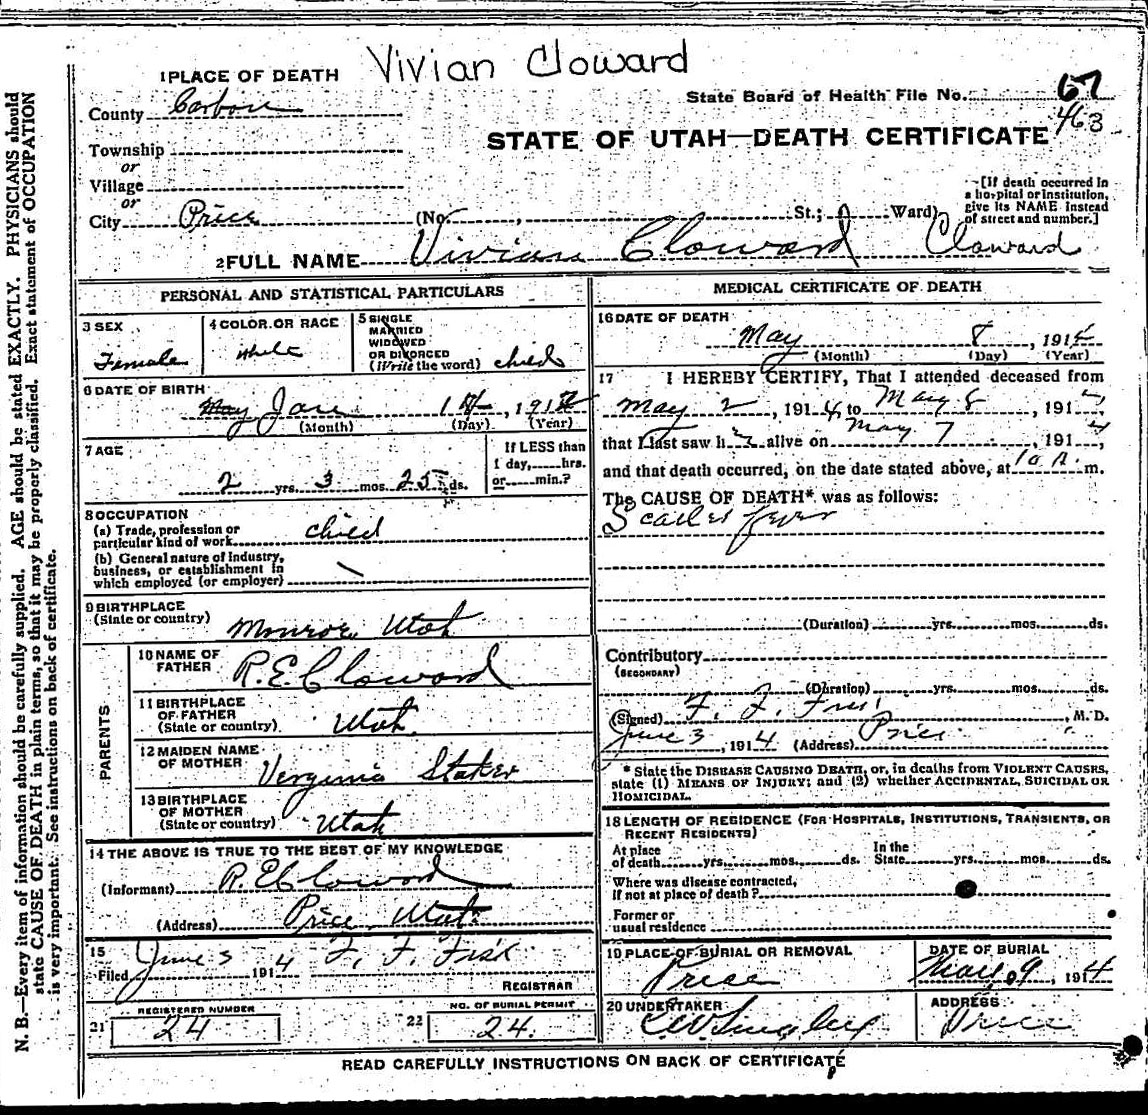 Vivian Cloward
1 PLACE OF DEATH
State Board of Health File No. 67
463
County Carbon
STATE OF UTAH—DEATH CERTIFICATE
Township
or
Village
or
City Price (No. , St.; Ward)
[If death occurred in a hospital or institution, give its NAME instead of street and number.]
2 FULL NAME Vivian Cloward Cloward
PERSONAL AND STATISTICAL PARTICULARS
3 SEX Female
4 COLOR OR RACE White
5 SINGLE MARRIED WIDOWED OR DIVORCED (Write the word) child
6 DATE OF BIRTH
May Jan 1st, 1912
(Month) (Day) (Year)
7 AGE
If LESS than 1 day, hrs. or min.?
2 yrs. 3 mos. 25 ds.
8 OCCUPATION
(a) Trade, profession or particular kind of work child
(b) General nature of industry, business, or establishment in which employed (or employer)
9 BIRTHPLACE
(State or country) Monroe, Utah
PARENTS
10 NAME OF FATHER R. E. Cloward
11 BIRTHPLACE OF FATHER (State or country) Utah
12 MAIDEN NAME OF MOTHER Verginia Staker
13 BIRTHPLACE OF MOTHER (State or country) Utah
14 THE ABOVE IS TRUE TO THE BEST OF MY KNOWLEDGE
(Informant) R. E Cloward
(Address) Price Utah
15
Filed June 3 1914 F. F. Fisk
REGISTRAR
21 REGISTERED NUMBER 24
22 NO. OF BURIAL PERMIT 24.
MEDICAL CERTIFICATE OF DEATH
16 DATE OF DEATH
May 8, 1914
(Month) (Day) (Year)
17 I HEREBY CERTIFY, That I attended deceased from
May 2, 1914 to May 8, 1914,
that I last saw her alive on May 7, 1914,
and that death occurred, on the date stated above, at 10 A. m.
The CAUSE OF DEATH* was as follows:
Scarlet fever
(Duration) yrs. mos. ds.
Contributory
(SECONDARY)
(Duration) yrs. mos. ds.
(Signed) F. F. Fisk, M. D.
June 3, 1914 (Address) Price
* State the DISEASE CAUSING DEATH, or, in deaths from VIOLENT CAUSES, state (1) MEANS OF INJURY; and (2) whether ACCIDENTAL, SUICIDAL OR HOMICIDAL.
18 LENGTH OF RESIDENCE (FOR HOSPITALS, INSTITUTIONS, TRANSIENTS, OR RECENT RESIDENTS)
At place of death yrs. mos. ds. In the State yrs. mos. ds.
Where was disease contracted, if not at place of death?
Former or usual residence
19 PLACE OF BURIAL OR REMOVAL Price
DATE OF BURIAL May 9, 1914
20 UNDERTAKER
ADDRESS Price
READ CAREFULLY INSTRUCTIONS ON BACK OF CERTIFICATE
N. B.—Every item of information should be carefully supplied. AGE should be stated EXACTLY. PHYSICIANS should
state CAUSE OF DEATH in plain terms, so that it may be properly classified. Exact statement of OCCUPATION
is very important. See instructions on back of certificate.